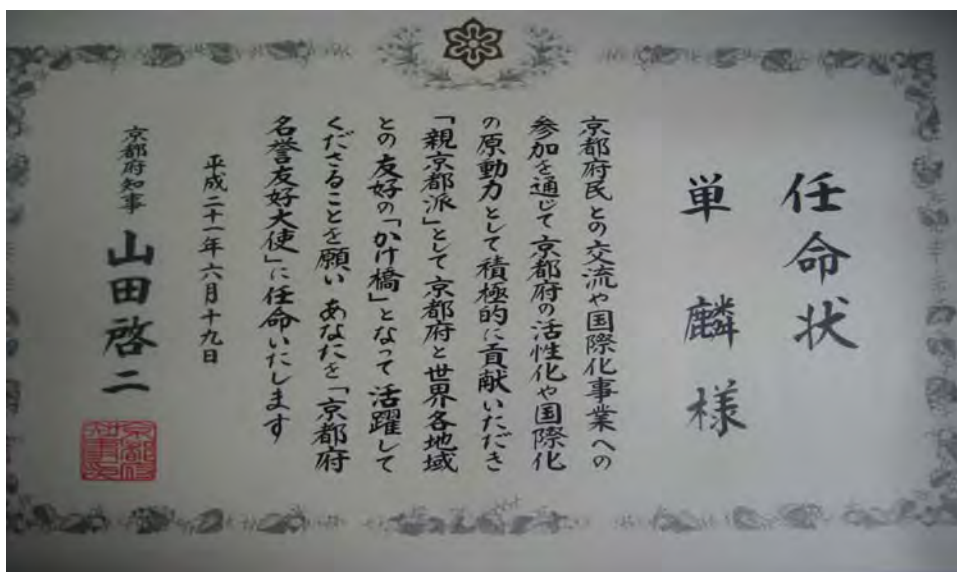 任命状
単麟様
京都府民との交流や国際化事業への
参加を通じて京都府の活性化や国際化
の原動力として積極的に貢献いただき
「親京都派」として京都府と世界各地域
との友好の「かけ橋」となって活躍して
くださることを願い あなたを「京都府
名誉友好大使」に任命いたします
平成二十一年六月十九日
京都府知事 山田啓二
京都府
知事之